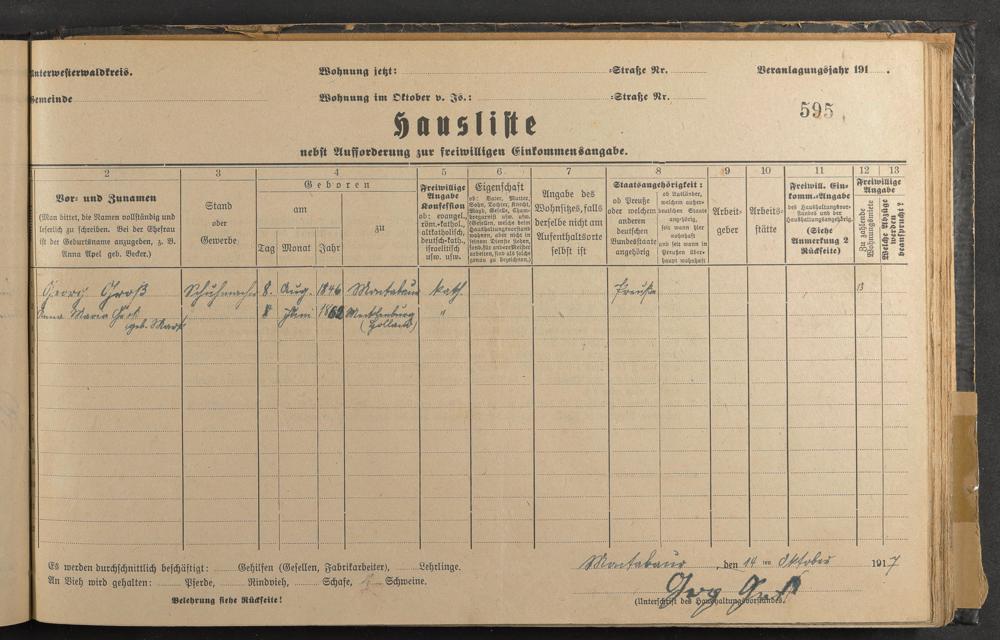 Unterwesterwaldkreis. Wohnung jetzt: -Straße Nr. Veranlagungsjahr 191 .
Gemeinde Wohnung im Oktober v. Js.: -Straße Nr.
595
Hausliste
nebst Aufforderung zur freiwilligen Einkommensangabe.
2 3 4 5 6 7 8 9 10 11 12 13
Vor- und Zunamen
(Man bittet, die Namen vollständig und
leserlich zu schreiben. Bei der Ehefrau
ist der Geburtsname anzugeben, z. B.
Anna Apel geb. Becker.)
Stand
oder
Gewerbe
Geboren
am
zu
Tag Monat Jahr
Freiwillige
Angabe
Konfession
ob: evangel.,
röm.-kathol.,
altkatholisch,
deutsch-kath.,
israelitisch
usw. usw.
Eigenschaft
ob: Vater, Mutter,
Sohn, Tochter, Knecht,
Angabe des
Wohnsitzes, falls
derselbe nicht am
Aufenthaltsorte
selbst ist
Staatsangehörigkeit:
ob Preuße
oder welchem
anderen
deutschen
Bundesstaate
angehörig
ob Ausländer,
welchem außer-
deutschen Staate
angehörig,
seit wann hier
wohnhaft
und seit wann in
Preußen über-
haupt wohnhaft
Arbeit-
geber
Arbeits-
stätte
Freiwill. Ein-
komm.-Angabe
des Haushaltungsvor-
standes und der
Haushaltungsangehörig.
(Siehe
Anmerkung 2
Rückseite)
Freiwillige
Angabe
Zu zahlende
Wohnungsmiete
Welche Abzüge
werden
beansprucht?
Georg Groß Schuhmacher 8. Aug. 1846 Montabaur kath. Preuße 13
Anna Maria 8 Juni 1862 "
geb. (Holland)
Es werden durchschnittlich beschäftigt: Gehilfen (Gesellen, Fabrikarbeiter), Lehrlinge.
An Vieh wird gehalten: Pferde, Rindvieh, Schafe, Schweine.
Belehrung siehe Rückseite!
Montabaur, den 14 ten Oktober 1917
(Unterschrift des Haushaltungsvorstandes.